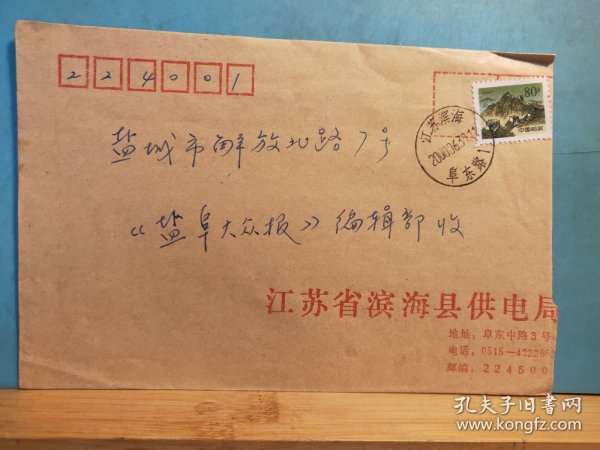 224001
80分
中国邮政
江苏滨海
阜东路1
盐城市解放北路7号
《盐阜大众报》编辑部收
江苏省滨海县供电局
地址：阜东中路3号
电话：0515-422395
邮编：224500
孔夫子旧书网
www.kongfz.com